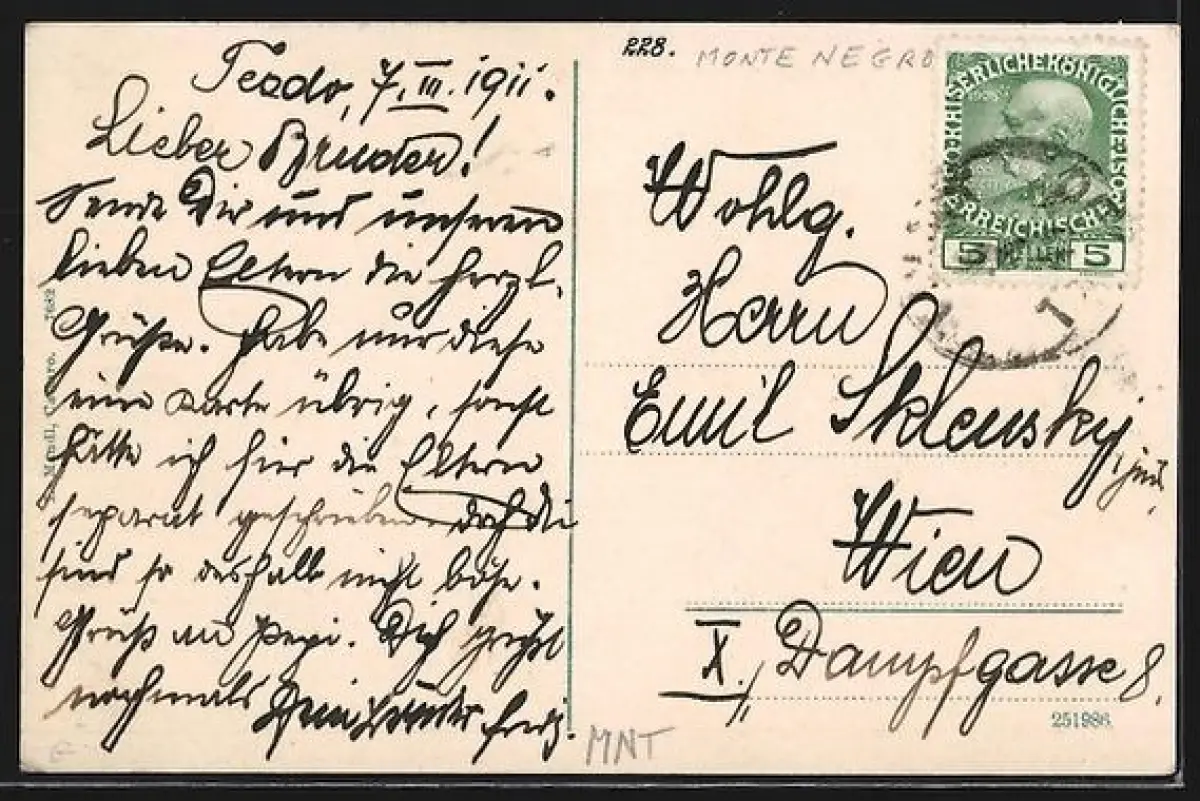 228. MONTE NEGRO
Teodo, 7. III. 1911.
Lieber Bruder!
Sende Dir und unseren
lieben Eltern die herzl.
Grüße. Habe nur diese
eine Karte übrig, sonst
hätte ich für die Eltern
separat geschrieben doch die
sind so deshalb nicht böse.
Gruß an Pepi. Dich grüßt
nochmals Dein Bruder
KAISERLICHE KÖNIGLICHE
ÖSTERREICHISCHE POST
1908
5 HELLER 5
Wohlg.
Herrn
Emil Sklensky, jun.
Wien
X., Dampfgasse 8.
251986
MNT
7682